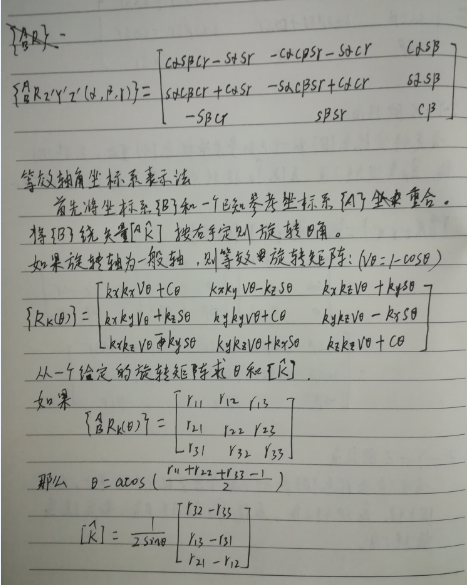 {ᴬ_B R} -
{ᴬ_B R z'y'z'(α,β,γ)} = [ cαsβcγ-sαsγ  -cαcβsγ-sαcγ  cαsβ
sαcβcγ+cαsγ  -sαcβsγ+cαcγ  sαsβ
-sβcγ  sβsγ  cβ ]
等效轴角坐标系表示法
首先将坐标系{B}和一个已知参考坐标系{A}重合。
将{B}绕矢量[ᴬK̂]按右手定则旋转θ角。
如果旋转轴为一般轴,则等效旋转矩阵:(vθ=1-cosθ)
{R_K(θ)} = [ kxkxvθ+cθ  kxkyvθ-kzsθ  kxkzvθ+kysθ
kxkyvθ+kzsθ  kykyvθ+cθ  kykzvθ-kxsθ
kxkzvθ-kysθ  kykzvθ+kxsθ  kzkzvθ+cθ ]
从一个给定的旋转矩阵求θ和[K̂].
如果
{ᴬ_B R_K(θ)} = [ r11  r12  r13
r21  r22  r23
r31  r32  r33 ]
那么 θ=acos( (r11+r22+r33-1)/2 )
[K̂] = 1/(2sinθ) [ r32-r33
r13-r31
r21-r12 ]